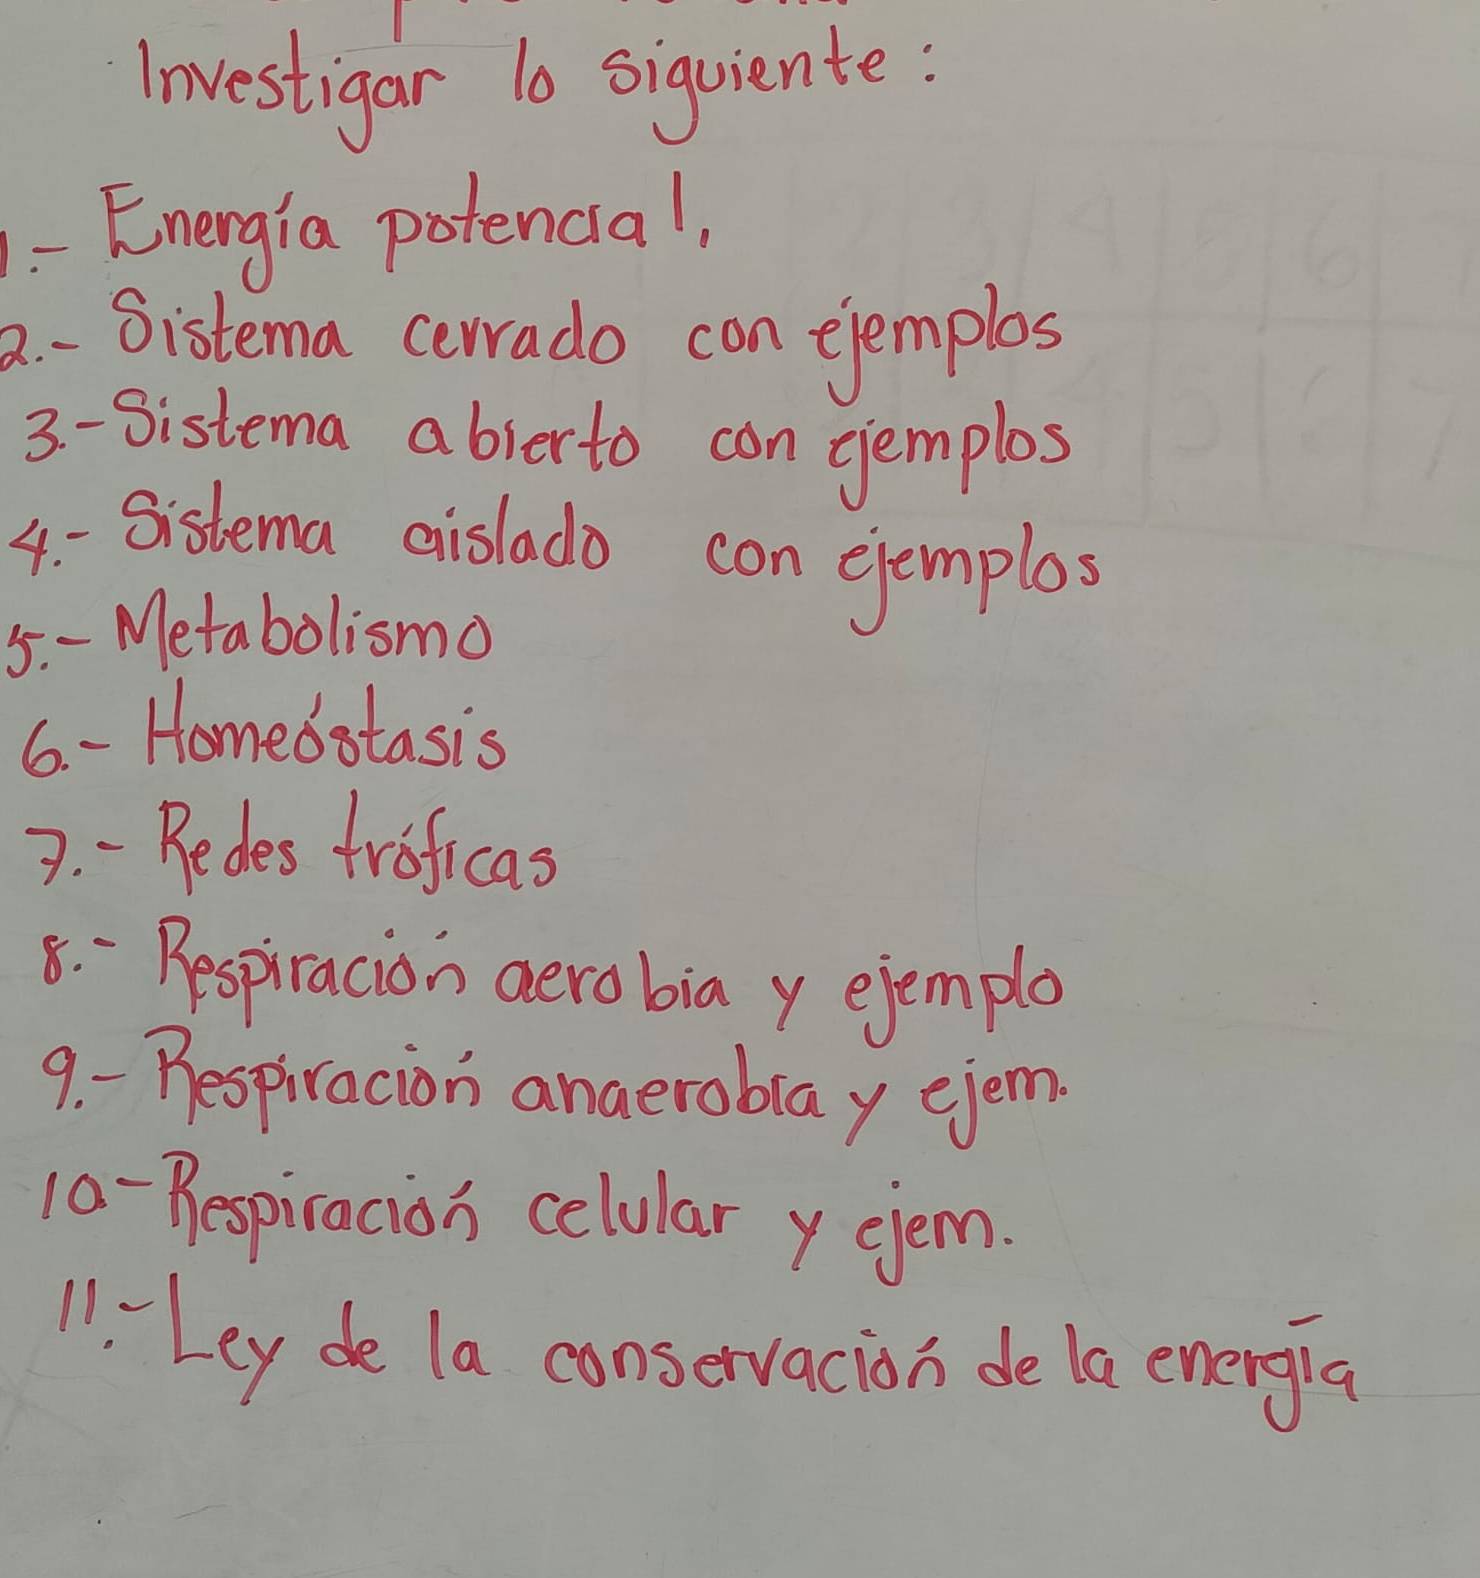 Investigar lo siguiente:
1.- Energía potencial.
2.- Sistema cerrado con ejemplos
3.- Sistema abierto con ejemplos
4.- Sistema aislado con ejemplos
5.- Metabolismo
6.- Homeóstasis
7.- Redes tróficas
8.- Respiración aerobia y ejemplo
9.- Respiración anaerobia y ejem.
10.- Respiración celular y ejem.
11.- Ley de la conservación de la energía